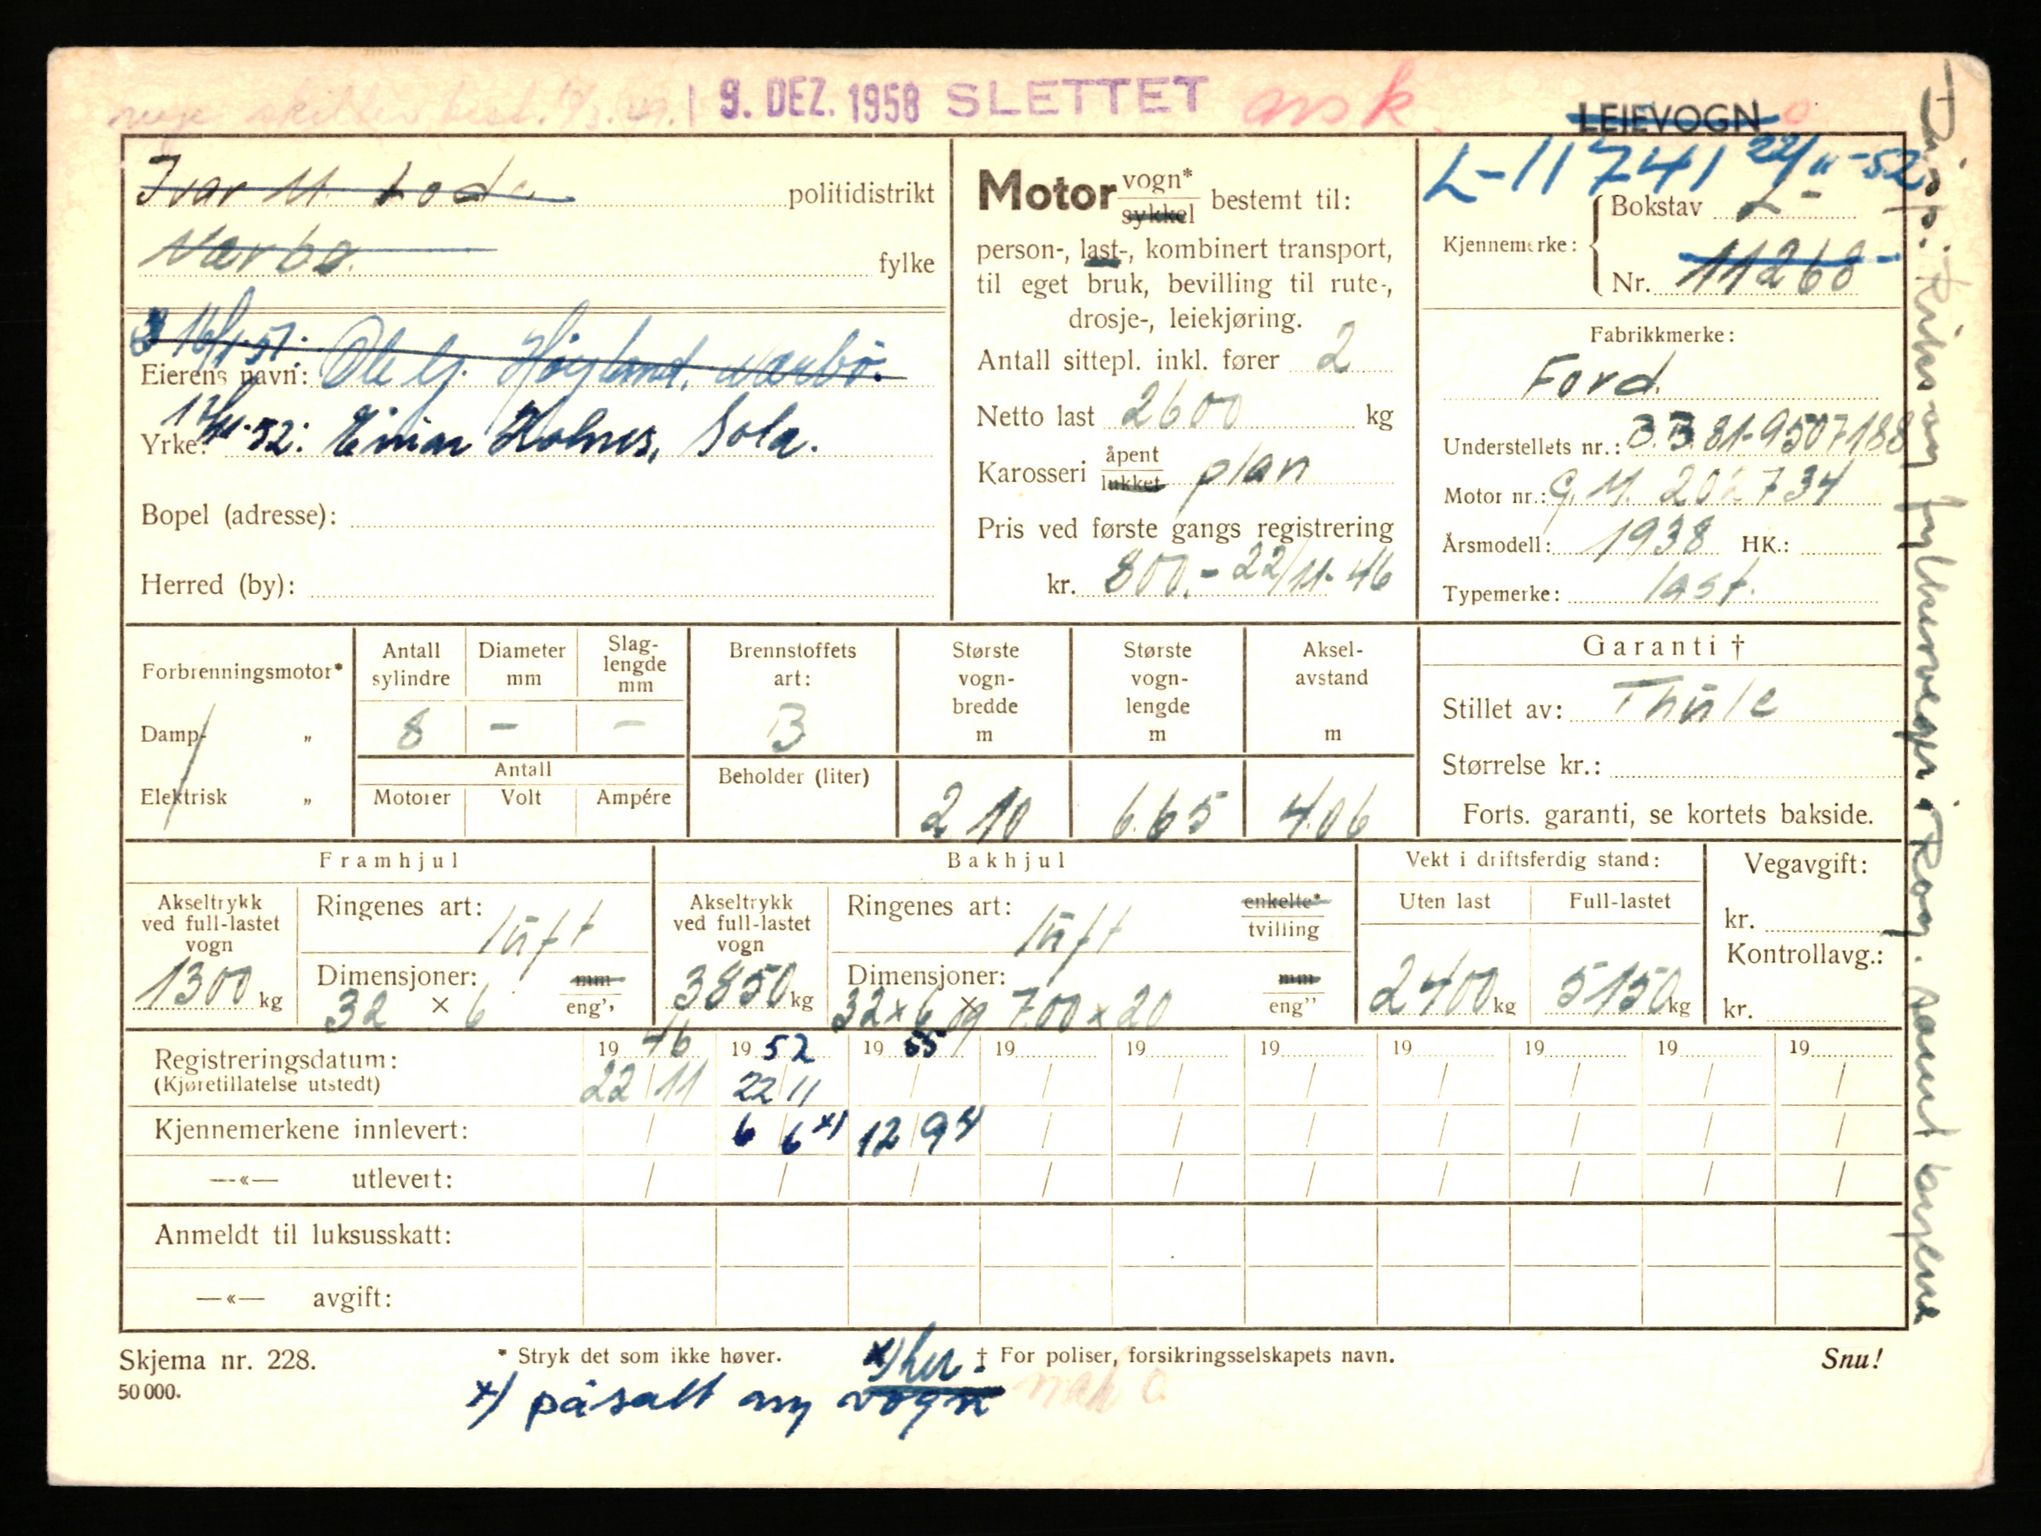 nye skilter best.
9. DEZ. 1958 SLETTET
LEIEVOGN
Ivar M. Lode politidistrikt
Nærbø. fylke
16/1-51: Ole G. Høyland, Nærbø.
Eierens navn:
12/11-52: Einar Holnes, Sola.
Yrke:
Bopel (adresse):
Herred (by):
Motor vogn* sykkel bestemt til:
person-, last-, kombinert transport,
til eget bruk, bevilling til rute-,
drosje-, leiekjøring.
Antall sittepl. inkl. fører 2
Netto last 2600 kg
Karosseri åpent lukket plan
Pris ved første gangs registrering
kr. 800.- 22/11-46
L-11741 22/11-52
Kjennemerke: Bokstav L-
Nr. 11268
Fabrikkmerke:
Ford.
Understellets nr.: B.B.81-9507188
Motor nr.: G.M. 202734
Årsmodell: 1938 HK.:
Typemerke: last.
Forbrenningsmotor*
Damp- „
Elektrisk „
Antall sylindre 8
Diameter mm -
Slag-lengde mm -
Antall
Motorer Volt Ampére
Brennstoffets art: B
Beholder (liter)
Største vogn-bredde m 2 10
Største vogn-lengde m 6.65
Aksel-avstand m 4.06
Garanti †
Stillet av: Thule
Størrelse kr.:
Forts. garanti, se kortets bakside.
Framhjul
Akseltrykk ved full-lastet vogn 1300 kg
Ringenes art: luft
Dimensjoner: 32 × 6 mm eng''
Bakhjul
Akseltrykk ved full-lastet vogn 3850 kg
Ringenes art: luft enkelte* tvilling
Dimensjoner: 32 × 6 og 7.00 × 20 mm eng''
Vekt i driftsferdig stand:
Uten last Full-lastet
2400 kg 5150 kg
Vegavgift:
kr.
Kontrollavg.:
kr.
Registreringsdatum: 19 46 19 52 19 55 19 19 19 19 19 19 19
(Kjøretillatelse utstedt) 22/11 22/11
Kjennemerkene innlevert: 6/6 x) 12/9 54
—«— utlevert:
Anmeldt til luksusskatt:
—«— avgift:
Skjema nr. 228.
50 000.
* Stryk det som ikke høver.
x) her.
† For poliser, forsikringsselskapets navn.
Snu!
x) påsatt ny vogn
Disp: Riks og fylkesveger i Rog. samt byene